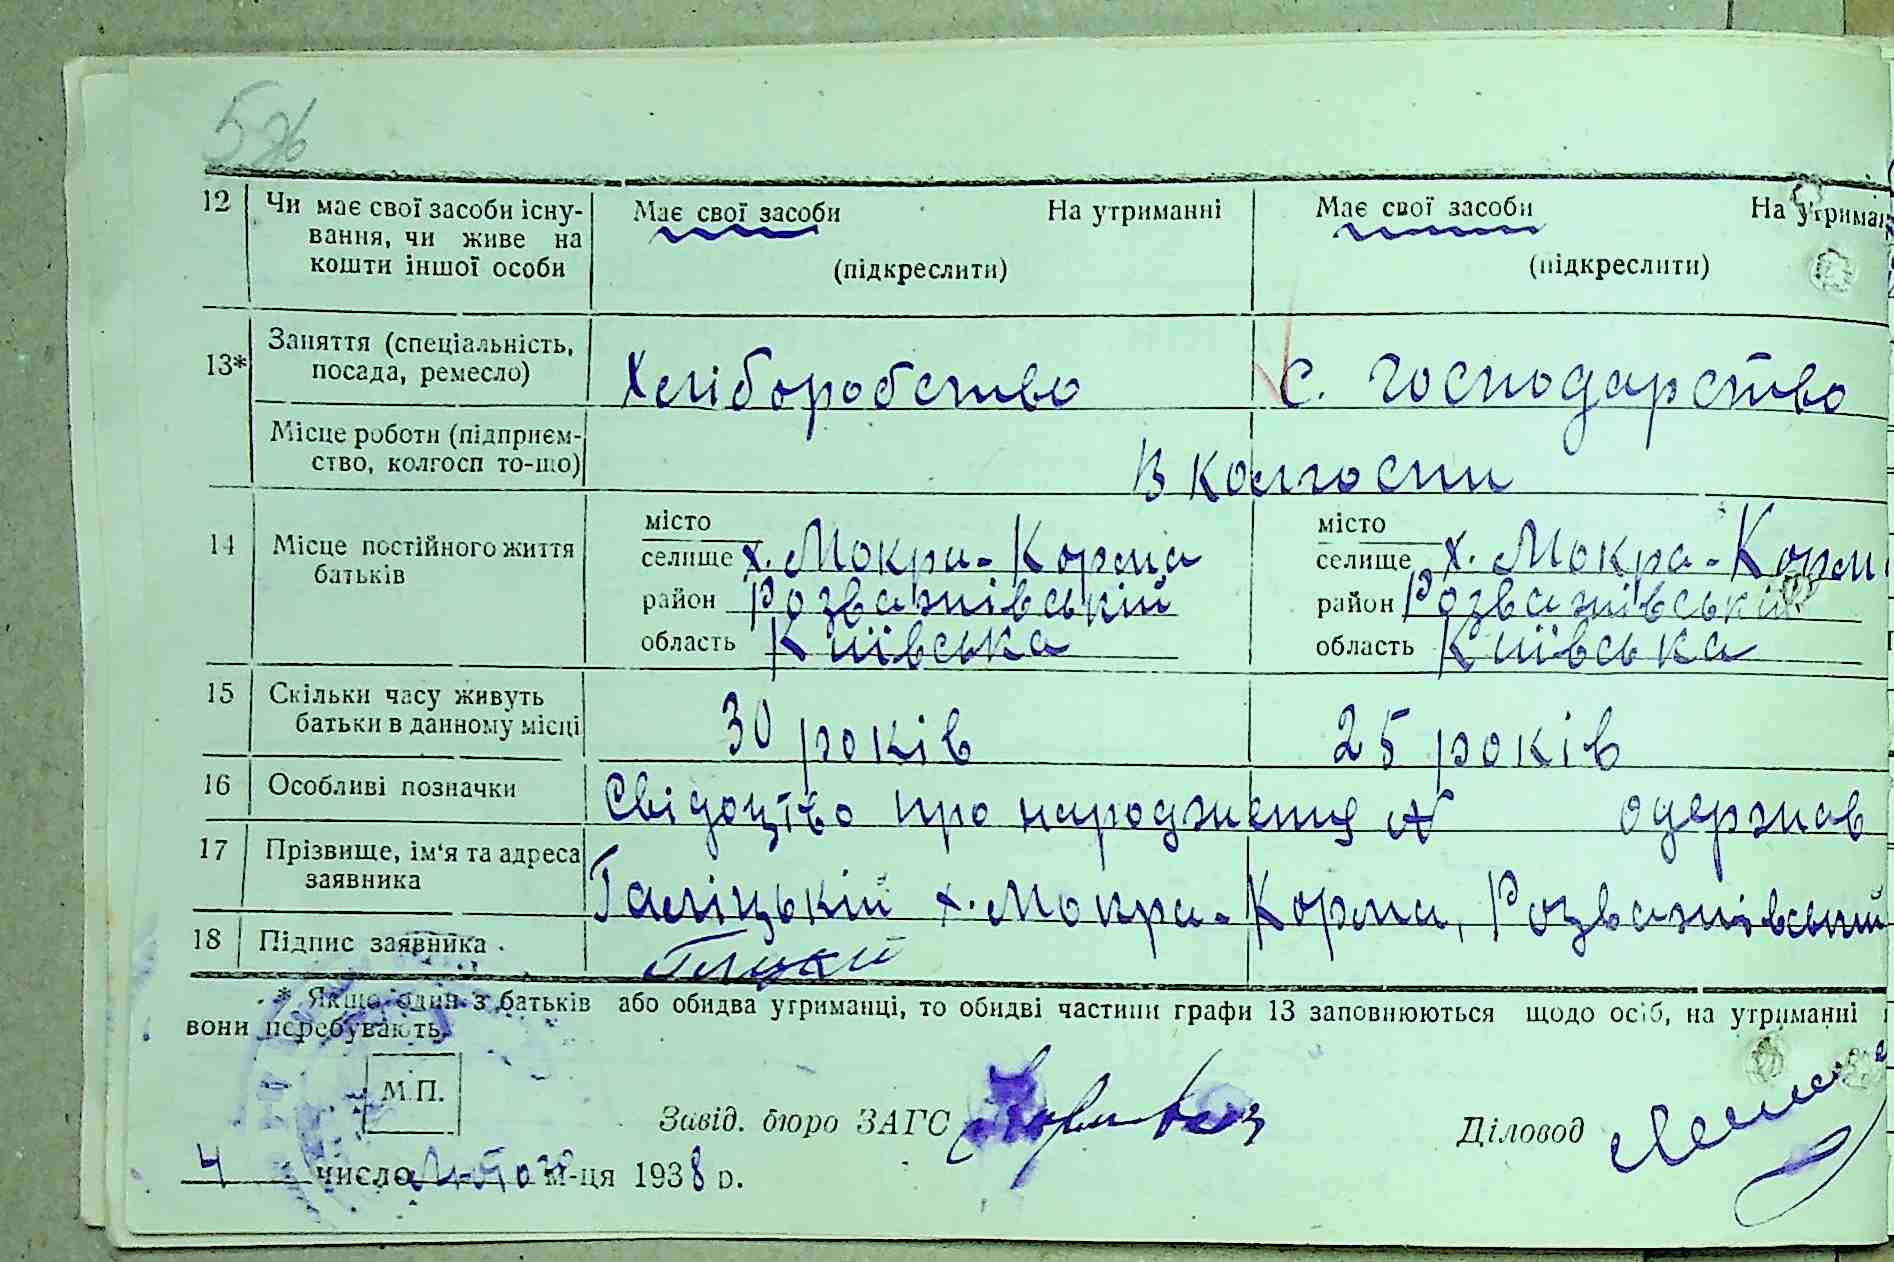 12 Чи має свої засоби існу- Має свої засоби На утриманні Має свої засоби На утриман
вання, чи живе на
кошти іншої особи (підкреслити) (підкреслити)
13* Заняття (спеціальність,
посада, ремесло) Хліборобство С. господарство
Місце роботи (підприєм-
ство, колгосп то-що) В колгоспи
14 Місце постійного життя
батьків
місто місто
селище х. Мокра-Корма селище х. Мокра-Корм
район Розважівській район Розважівській
область Київська область Київська
15 Скільки часу живуть
батьки в данному місці 30 років 25 років
16 Особливі позначки Свідоцтво про народження № одержав
17 Прізвище, ім'я та адреса
заявника Галіцькій х. Мокра-Корма, Розважівський
18 Підпис заявника
* Якщо один з батьків або обидва утриманці, то обидві частини графи 13 заповнюються щодо осіб, на утриманні
вони перебувають.
М.П.
Завід. бюро ЗАГС Діловод
4 число м-ця 1938 р.